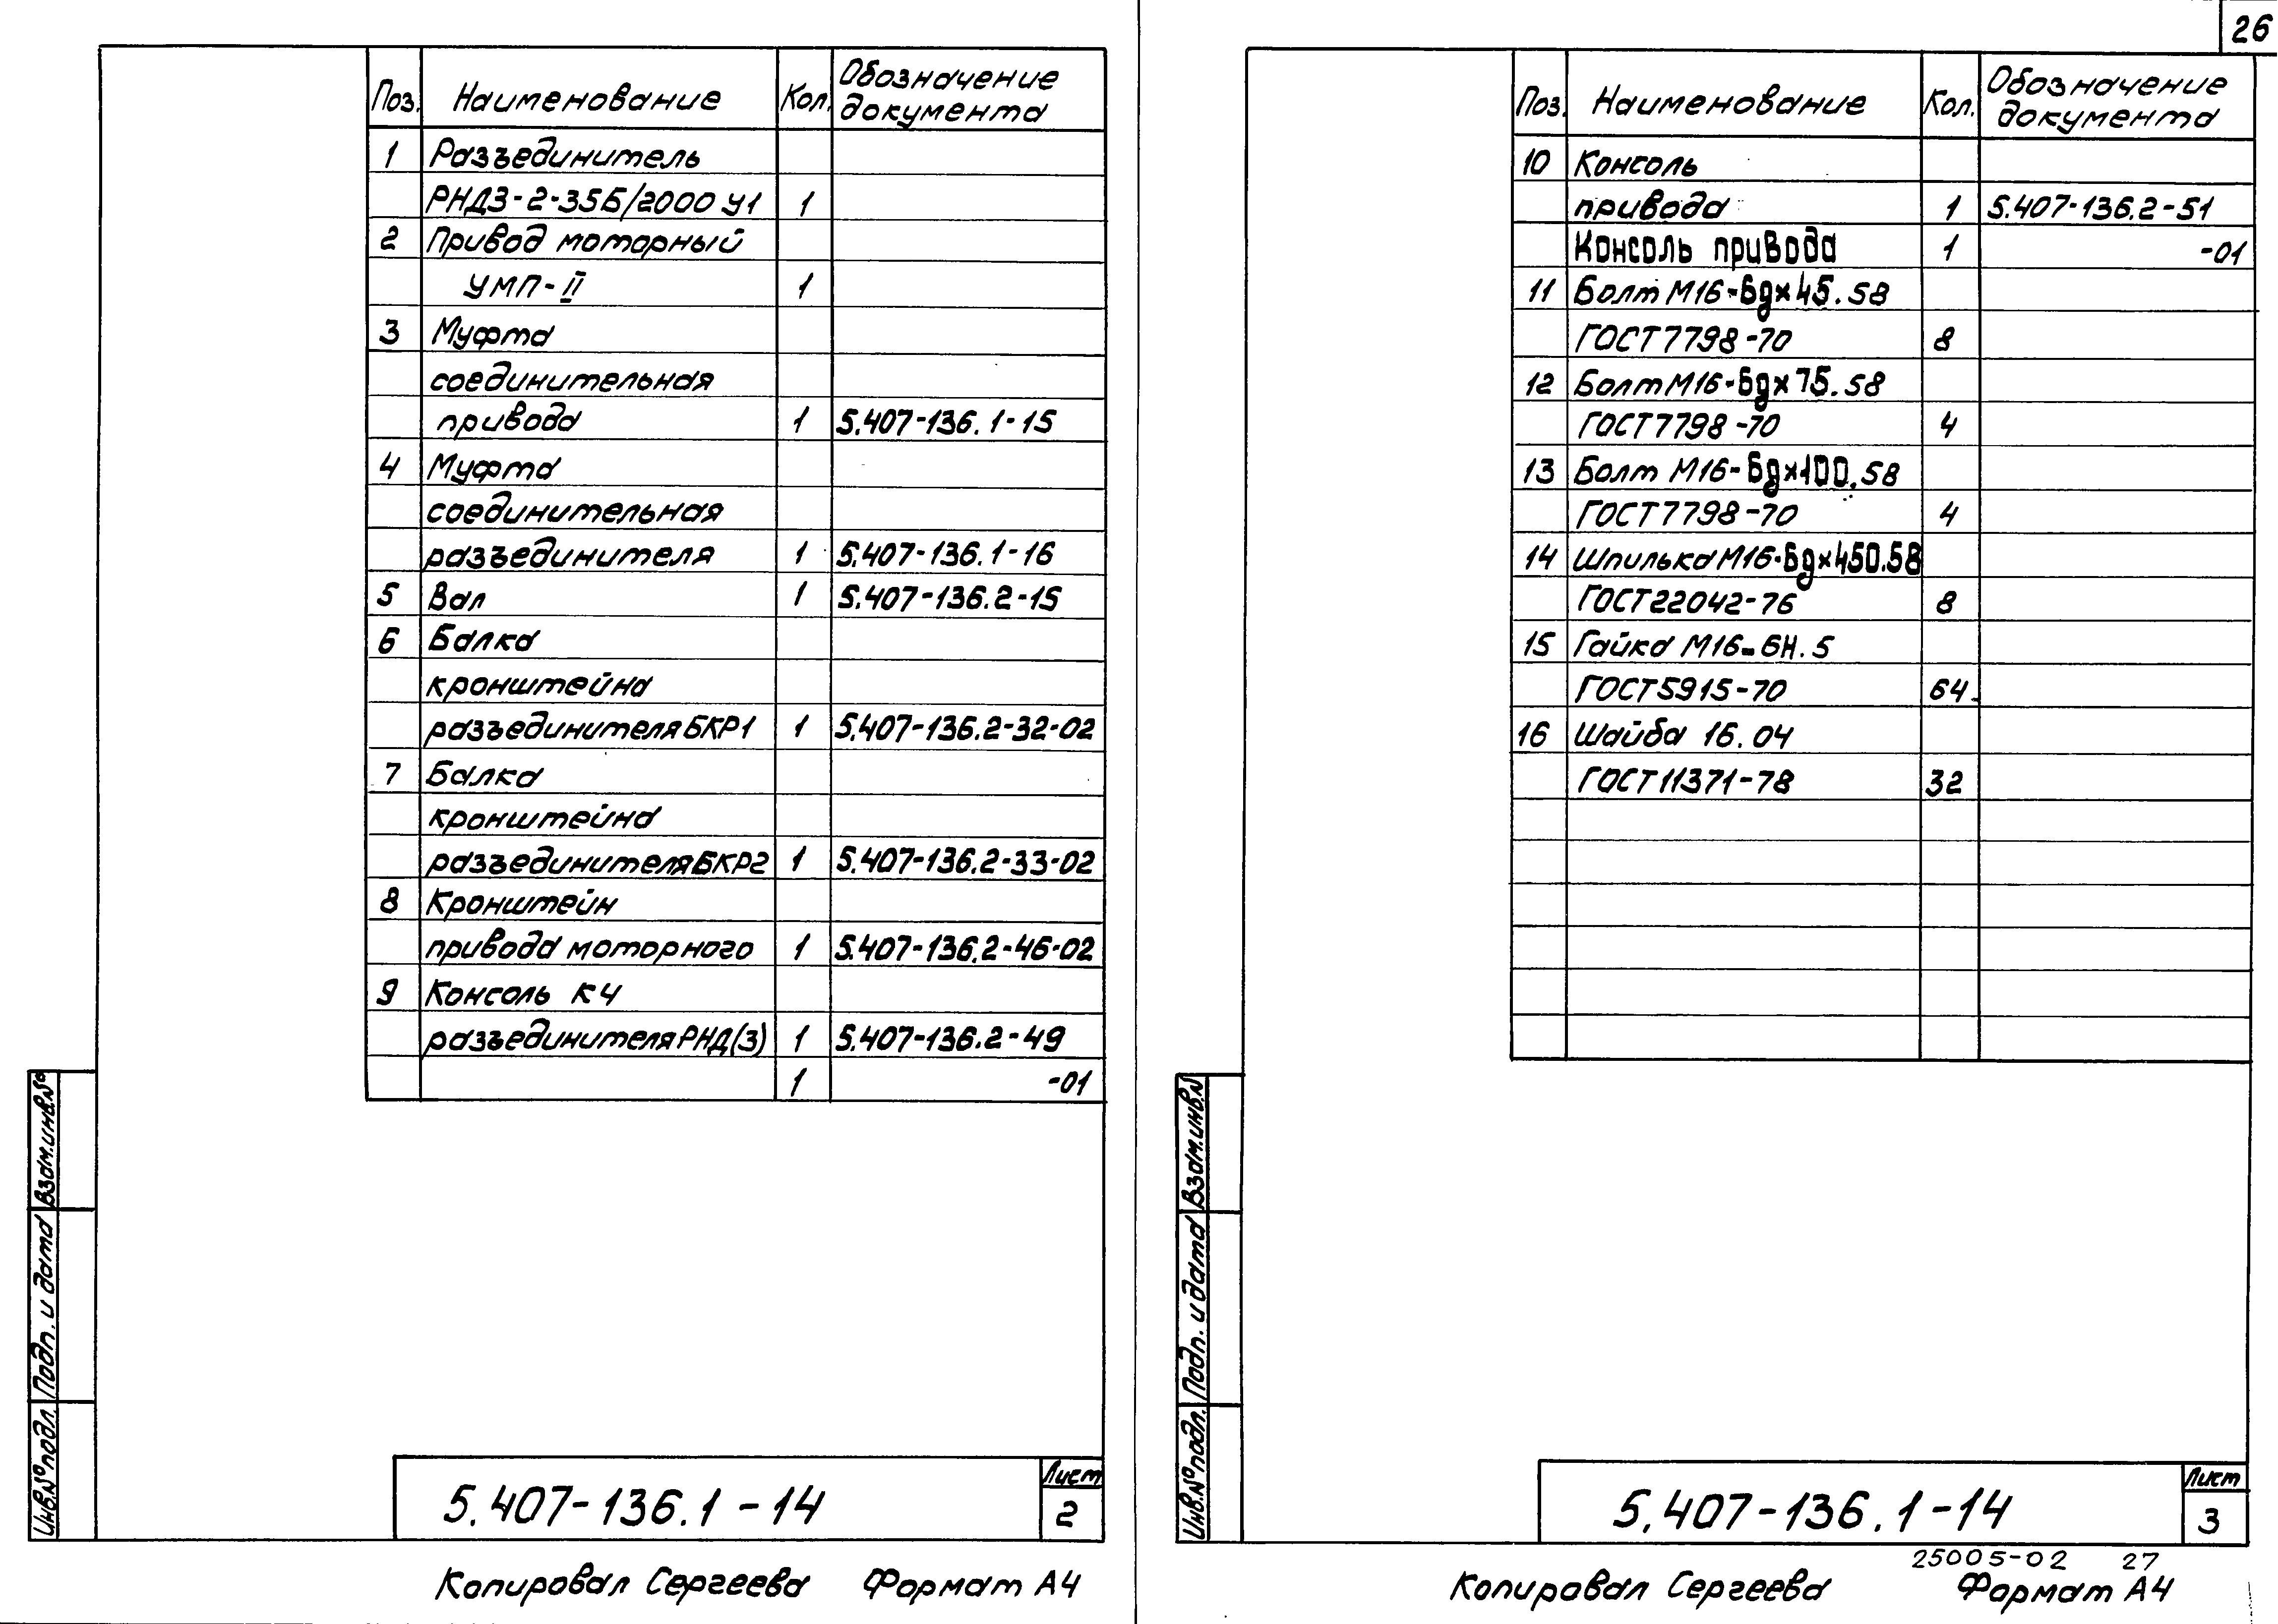 Поз. Наименование Кол. Обозначение документа
1 Разъединитель
РНДЗ-2-35Б/2000 У1 1
2 Привод моторный
УМП-II 1
3 Муфта
соединительная
привода 1 5.407-136.1-15
4 Муфта
соединительная
разъединителя 1 5.407-136.1-16
5 Вал 1 5.407-136.2-15
6 Балка
кронштейна
разъединителя БКР1 1 5.407-136.2-32-02
7 Балка
кронштейна
разъединителя БКР2 1 5.407-136.2-33-02
8 Кронштейн
привода моторного 1 5.407-136.2-46-02
9 Консоль К4
разъединителя РНД(З) 1 5.407-136.2-49
1 -01
Взам.инв.№
Подп. и дата
Инв.№ подл.
5.407-136.1-14
Лист
2
Копировал Сергеева Формат А4
26
Поз. Наименование Кол. Обозначение документа
10 Консоль
привода 1 5.407-136.2-51
Консоль привода 1 -01
11 Болт М16-6gх45.58
ГОСТ 7798-70 8
12 Болт М16-6gх75.58
ГОСТ 7798-70 4
13 Болт М16-6gх100.58
ГОСТ 7798-70 4
14 Шпилька М16-6gх450.58
ГОСТ 22042-76 8
15 Гайка М16-6Н.5
ГОСТ 5915-70 64
16 Шайба 16.04
ГОСТ 11371-78 32
Взам.инв.№
Подп. и дата
Инв.№ подл.
5.407-136.1-14
Лист
3
25005-02 27
Копировал Сергеева Формат А4